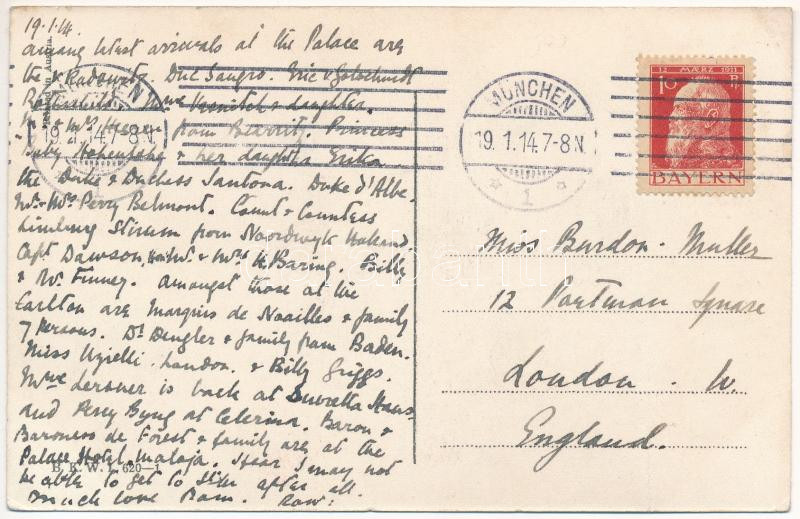 19.1.14.
among latest arrivals at the Palace are
the Radowitz. Duc Sangro. Eric & Goldschmidt
Rothschild. Mme & daughter.
& Mrs from Biarritz. Princess
Hohenlohe & her daughter Erika
the Duke & Duchess Santona. Duke d'Albe.
Mr. & Mrs Perry Belmont. Count & Countess
Limburg Stirum from Noordwyk Holland
Capt Dawson, Hon W. & Mrs H. Baring. Billy
& W. Finney. amongst those at the
Carlton are Marquis de Noailles & family
7 Persons. Dr. Dengler & family from Baden.
Miss Uzielli. London. & Billy Griggs.
Mme is back at Suvretta Haus.
and Percy Byng at Celerina. Baron &
Baroness de Forest & family are at the
Palace Hotel. Maloja. I fear I may not
be able to get to after all.
much love
Printed in Austria
B. K. W. I. 620-1
MÜNCHEN
19. 1. 14. 7-8 N.
MÜNCHEN
19. 1. 14. 7-8 N.
1
12 MÄRZ 1911
10 Pf
BAYERN
Miss Burdon-Muller
12 Portman Square
London. W.
England.